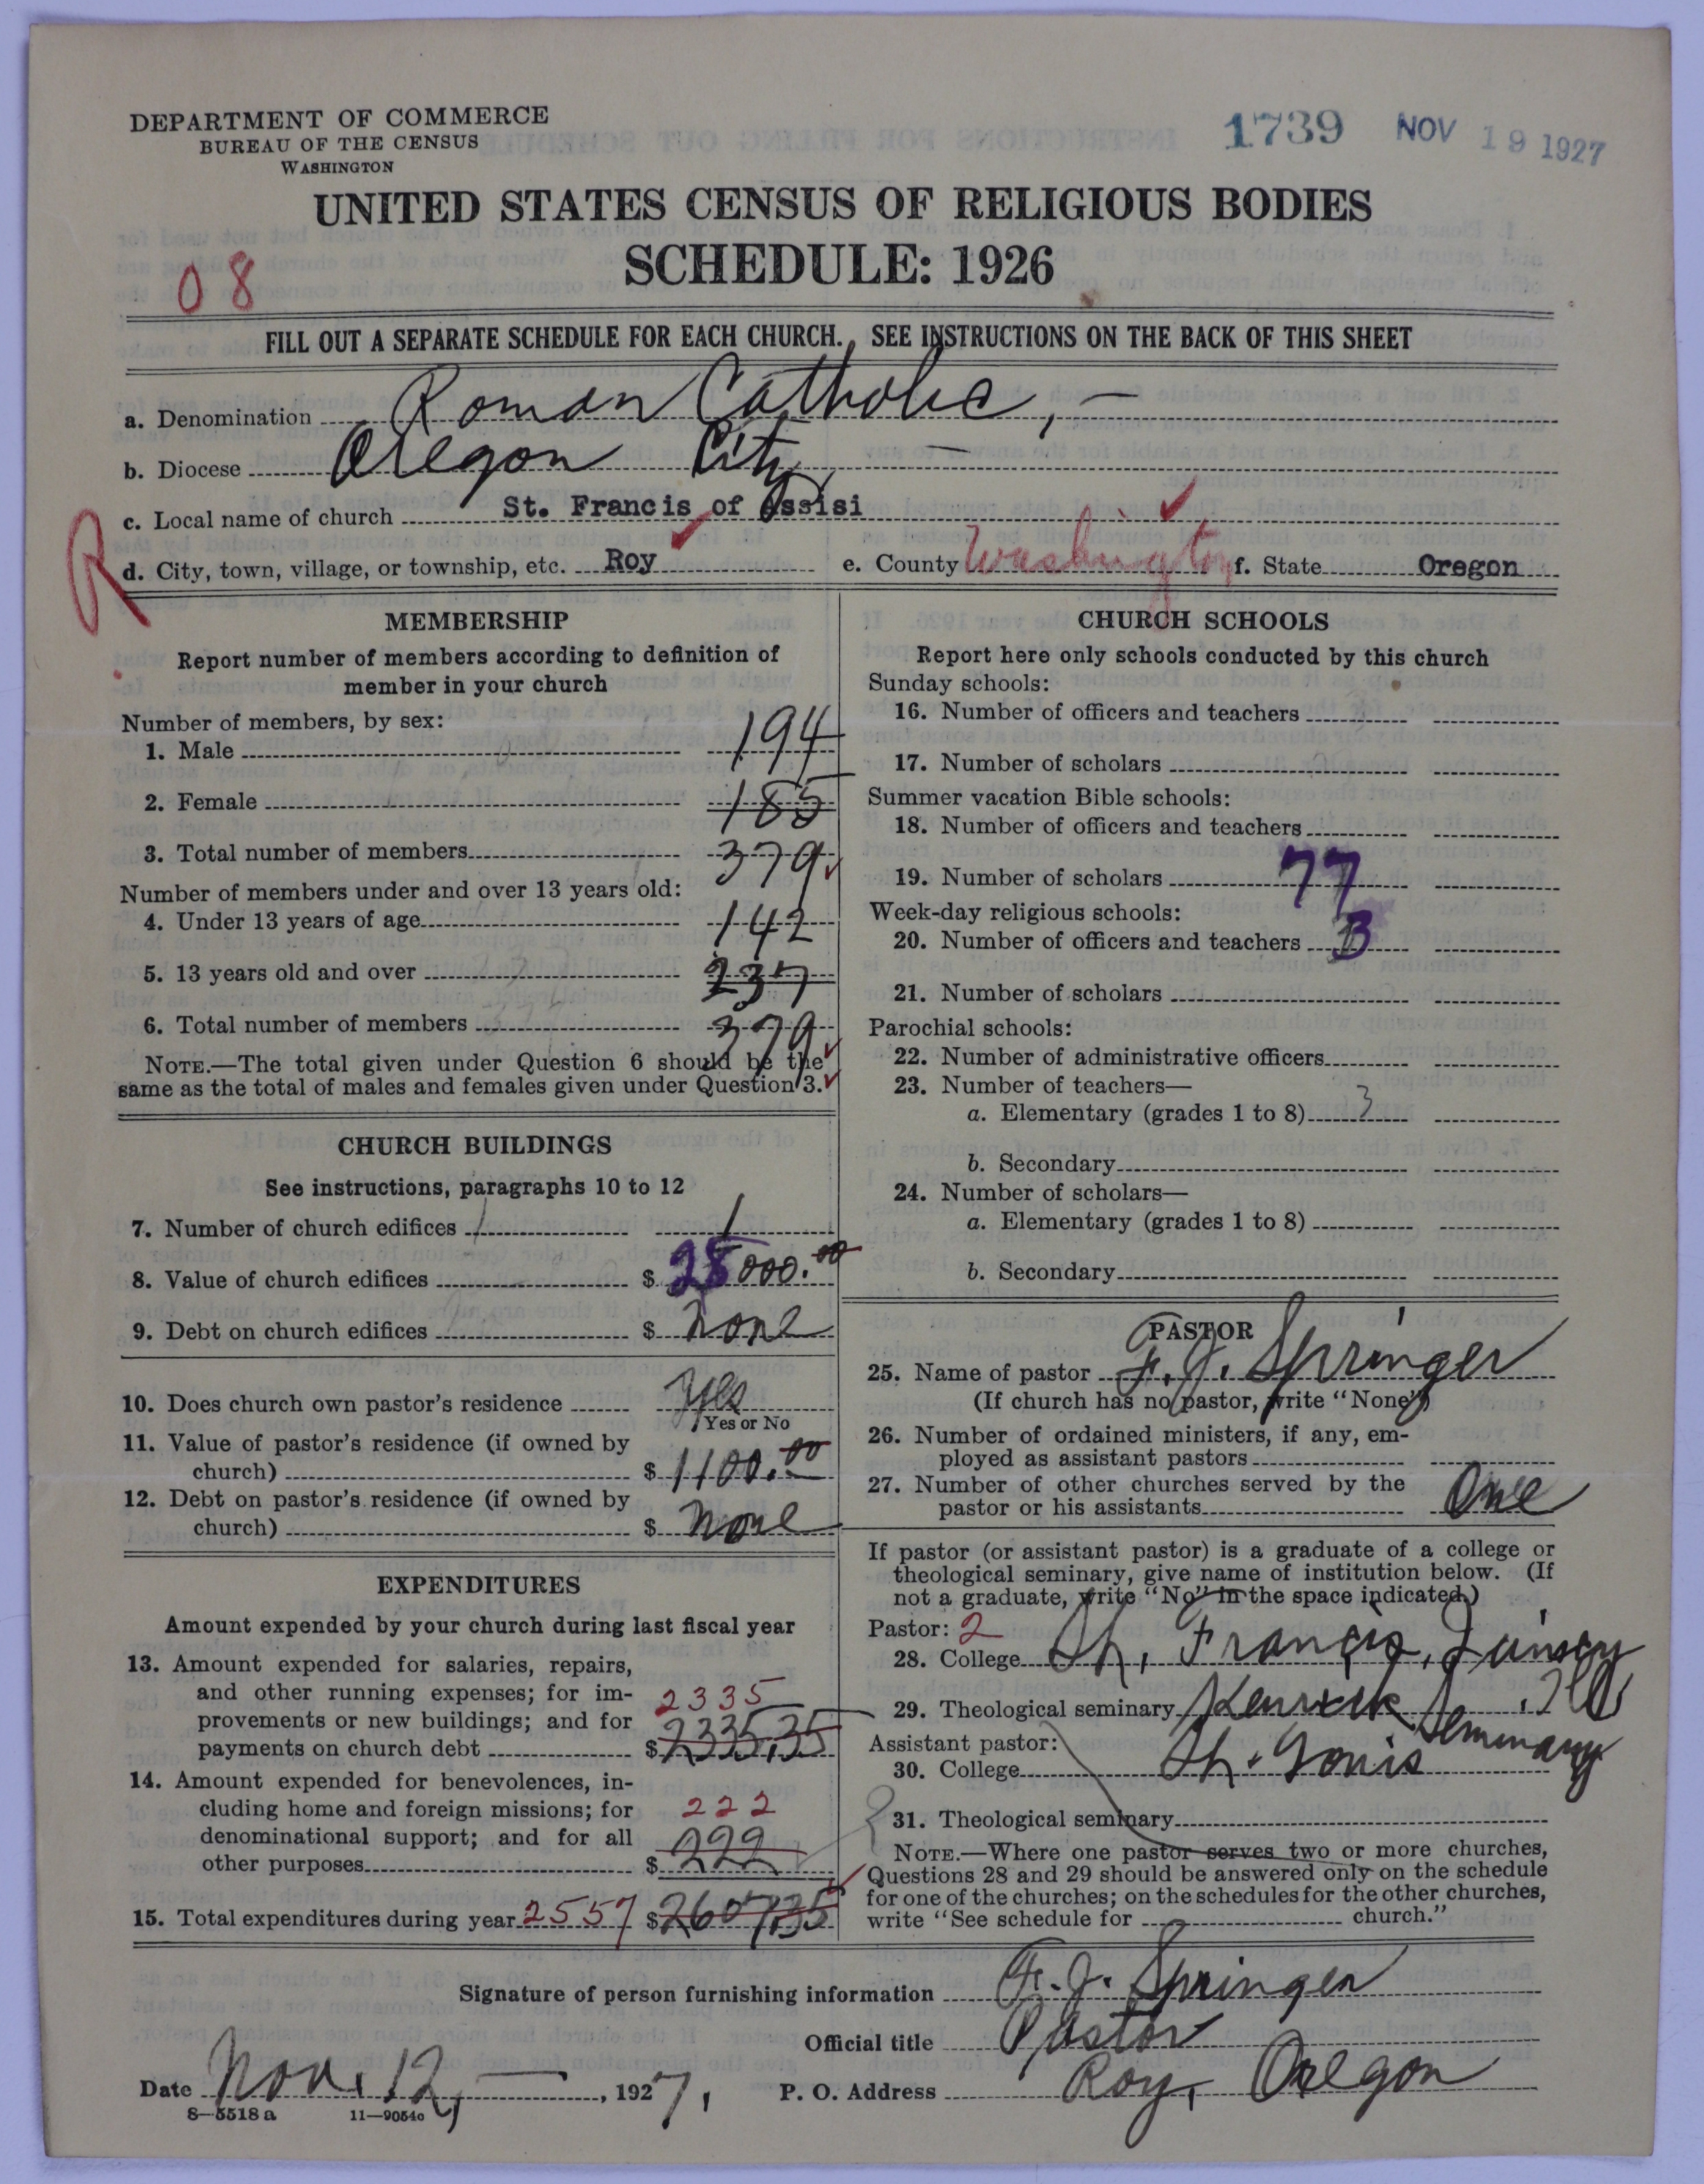 DEPARTMENT OF COMMERCE
BUREAU OF THE CENSUS
WASHINGTON
1739 NOV 19 1927
UNITED STATES CENSUS OF RELIGIOUS BODIES
SCHEDULE: 1926
08
FILL OUT A SEPARATE SCHEDULE FOR EACH CHURCH. SEE INSTRUCTIONS ON THE BACK OF THIS SHEET
a. Denomination Roman Catholic, —
b. Diocese Oregon City —
c. Local name of church St. Francis of Assisi
R
d. City, town, village, or township, etc. Roy e. County Washington f. State Oregon
MEMBERSHIP
Report number of members according to definition of
member in your church
Number of members, by sex:
1. Male 194
2. Female 185
3. Total number of members 379
Number of members under and over 13 years old:
4. Under 13 years of age 142
5. 13 years old and over 237
6. Total number of members 379
NOTE.—The total given under Question 6 should be the
same as the total of males and females given under Question 3.
CHURCH BUILDINGS
See instructions, paragraphs 10 to 12
7. Number of church edifices 1 1
8. Value of church edifices $ 28000.00
9. Debt on church edifices $ None
10. Does church own pastor's residence Yes
Yes or No
11. Value of pastor's residence (if owned by
church) $ 1100.00
12. Debt on pastor's residence (if owned by
church) $ None
EXPENDITURES
Amount expended by your church during last fiscal year
13. Amount expended for salaries, repairs,
and other running expenses; for im-
2335
provements or new buildings; and for
payments on church debt $ 2335.35
14. Amount expended for benevolences, in-
cluding home and foreign missions; for 222
denominational support; and for all
other purposes $ 222
15. Total expenditures during year 2557 $ 2607.35
CHURCH SCHOOLS
Report here only schools conducted by this church
Sunday schools:
16. Number of officers and teachers
17. Number of scholars
Summer vacation Bible schools:
18. Number of officers and teachers
19. Number of scholars 77
Week-day religious schools:
20. Number of officers and teachers 3
21. Number of scholars
Parochial schools:
22. Number of administrative officers
23. Number of teachers—
a. Elementary (grades 1 to 8) 3
b. Secondary
24. Number of scholars—
a. Elementary (grades 1 to 8)
b. Secondary
PASTOR
25. Name of pastor F. J. Springer
(If church has no pastor, write "None")
26. Number of ordained ministers, if any, em-
ployed as assistant pastors
27. Number of other churches served by the
pastor or his assistants One
If pastor (or assistant pastor) is a graduate of a college or
theological seminary, give name of institution below. (If
not a graduate, write "No" in the space indicated.)
Pastor: 2
28. College St. Francis, Quincy
Ill
29. Theological seminary Kenrick Seminary
Assistant pastor: St. Louis
30. College
31. Theological seminary
NOTE.—Where one pastor serves two or more churches,
Questions 28 and 29 should be answered only on the schedule
for one of the churches; on the schedules for the other churches,
write "See schedule for church."
Signature of person furnishing information F. J. Springer
Official title Pastor
Date Nov. 12, — , 1927, P. O. Address Roy, Oregon
8—5518 a 11—9054o